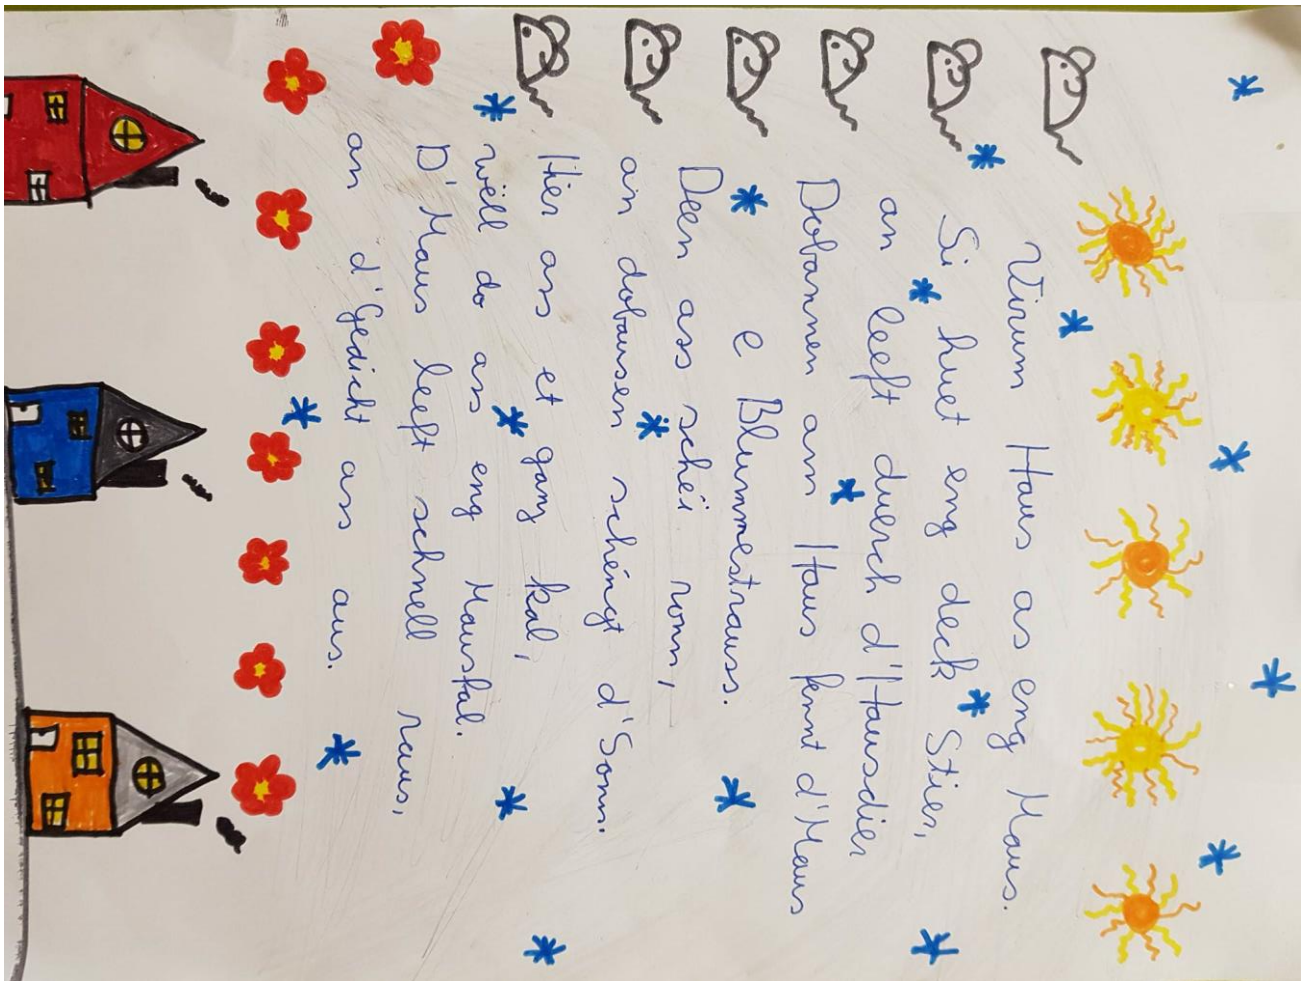 Virum Haus as eng Maus.
Si huet eng deck Stier,
an leeft duerch d'Hausdier
Dobannen am Haus fennt d'Maus
e Blummestrauss.
Deen ass schéi ronn,
an dobaussen schéngt d'Sonn.
Hier ass et ganz kal,
wëll do as eng Mausfal.
D'Maus leeft schnell raus,
an d'Gedicht ass aus.